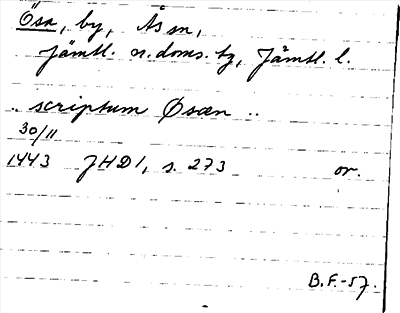 Ösa, by, Ås sn,
Jämtl. n. doms. tg, Jämtl. l.
.. scriptum Øsæn ..
30/11
1443 JHD1, s. 273 or.
B.F.-57.